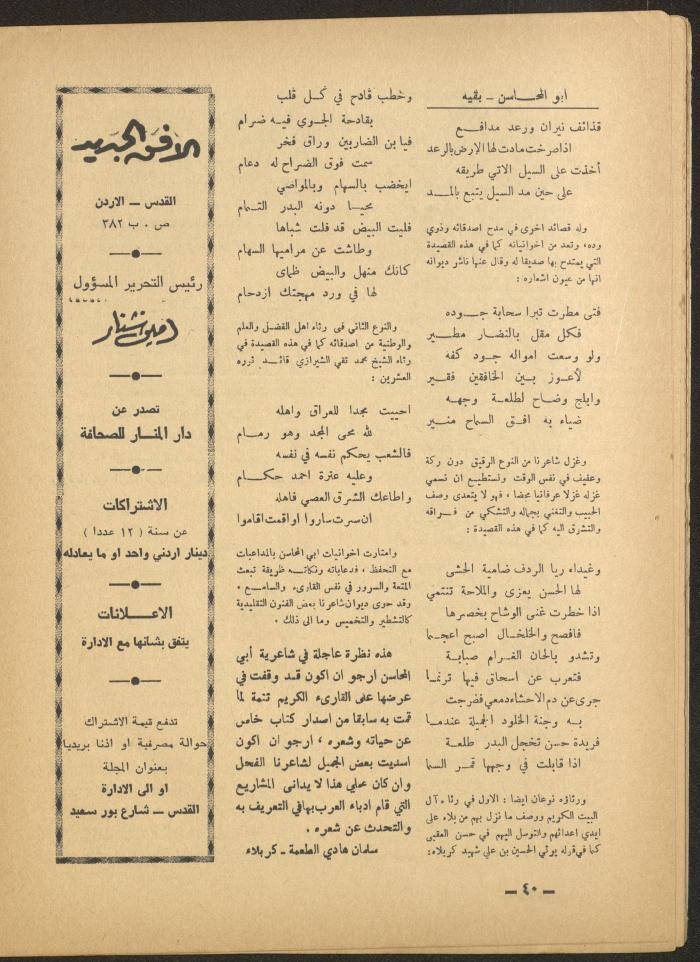 ابو المحـــاسن ــ بقيه
قذائف نيران ورعد مدافـــع
اذا صرخت مادت لها الارض بالرعد
أخذت على السيل الاتي طريقه
على حين مد السيل يتبع بالمـــد
وله قصائد اخرى في مدح اصدقائه وذوي
وده، وتعد من اخوانيانه كما في هذه القصيدة
التي يمتدح بها صديقا له وقال عنها ناشر ديوانه
انها من عيون اشعاره :
فتى مطرت تبرا سحابة جـــوده
فكل مقل بالنضار مطـــير
ولو وسعت امواله جـــود كفه
لأعـــوز بـــين الخافقين فقـــير
وابلج وضاح لطلعـــة وجهـــه
ضياء به افـــق السماح منـــير
وغزل شاعرنا من النوع الرقيق دون ركة
وعفيف في نفس الوقت ونستطيـــع ان نسمي
غزله غزلا عرفانيا محضا ، فهو لا يتعدى وصف
الحبيب والتغني بجماله والتشكي من فـــراقه
والتشرق اليه كما في هذه القصيدة :
وغيداء ريا الردف ضامية الحشى
لها الحسن يعزى والملاحة تنتمي
اذا خطرت غنى الوشاح بخصرها
فافصح والخلخـــال اصبح اعجـــما
وتشدو بالحان الغـــرام صبابـــة
فتعرب عن اسحاق فيها ترنمـــا
جرى عن دم الاحشاء دمعي فضرجت
بـــه وجنة الخلود الجميلة عندمـــا
فريدة حسن تخجل البدر طلعـــة
اذا قابلت في وجهها قمـــر السما
ورثاؤه نوعان ايضا : الاول في رثاء آل
البيت الكرويم ووصف ما نزل بهم من بلاء على
ايدي اعدائهم والتوسل اليهم في حسن العقبى
كما في قوله يرثي الحسين بن علي شهيد كربلاء:
وخطب قادح في كـــل قلب
بقادحة الجـــوي فيـــه ضرام
فيا بن الضاربين وراق فخر
سمت فوق الضراح لـــه دعام
ايخضب بالسهام وبالمواصي
محيـــا دونه البدر التـــام
فليت البيض قد فلت شباها
وطاشت عن مراميها السهام
كانك منهل والبيض ظماى
لها في ورد مهجتك ازدحام
والنوع الثاني في رثاء اهل الفضـــل والعلم
والوطنية من اصدقائه كما في هذه القصيدة في
رثاء الشيخ محمد تقي الشيرازي قائـــد ثورة
العشرين :
احييت مجدا للعراق واهله
لله محى المجد وهو رمـــام
فالشعب يحكم نفسه في نفسه
وعليه عترة احمد حكـــام
واطاعك الشرق العصي فاهله
ان سرت ساروا او اقمت اقاموا
وامتازت اخوانيات ابي المحاسن بالمداعبات
مع التحفظ ، فدعاباته ونكاتـــه ظريفة تبعث
المتعة والسرور في نفس القارىء والسامـــع .
وقد حوى ديوان شاعرنا بعض الفنون التقليدية
كالتشطير والتخميس وما الى ذلك .
هذه نظرة عاجلة في شاعرية أبي
المحاسن ارجو ان اكون قـــد وقفت في
عرضها على القارىء الكريم تتمة لما
قمت به سابقا من اصدار كتاب خاص
عن حياته وشعره ، ارجو ان اكون
اسديت بعض الجميل لشاعرنا الفحل
وان كان عملي هذا لا يدانى المشاريع
التي قام ادباء العرب بها في التعريف به
والتحدث عن شعره .
سلمان هادي الطعمة ــ كربلاء
الافق الجديد
القدس ــ الاردن
ص . ب ٣٨٢
رئيس التحرير المسؤول
امين شنار
تصدر عن
دار المنـــار للصحافة
الاشتراكات
عن سنة ( ١٢ عددا )
دينار اردني واحد او ما يعادله
الاعـــلانات
يتفق بشانها مع الادارة
تدفع قيمة الاشتراك
حوالة مصرفية او اذنا بريديا
بعنوان المجلة
او الى الادارة
القدس ــ شارع بور سعيد
ــ ٤٠ ــ